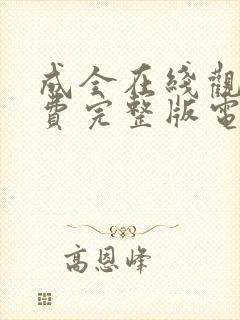 成全在綫觀
費完整版電
高恩峰